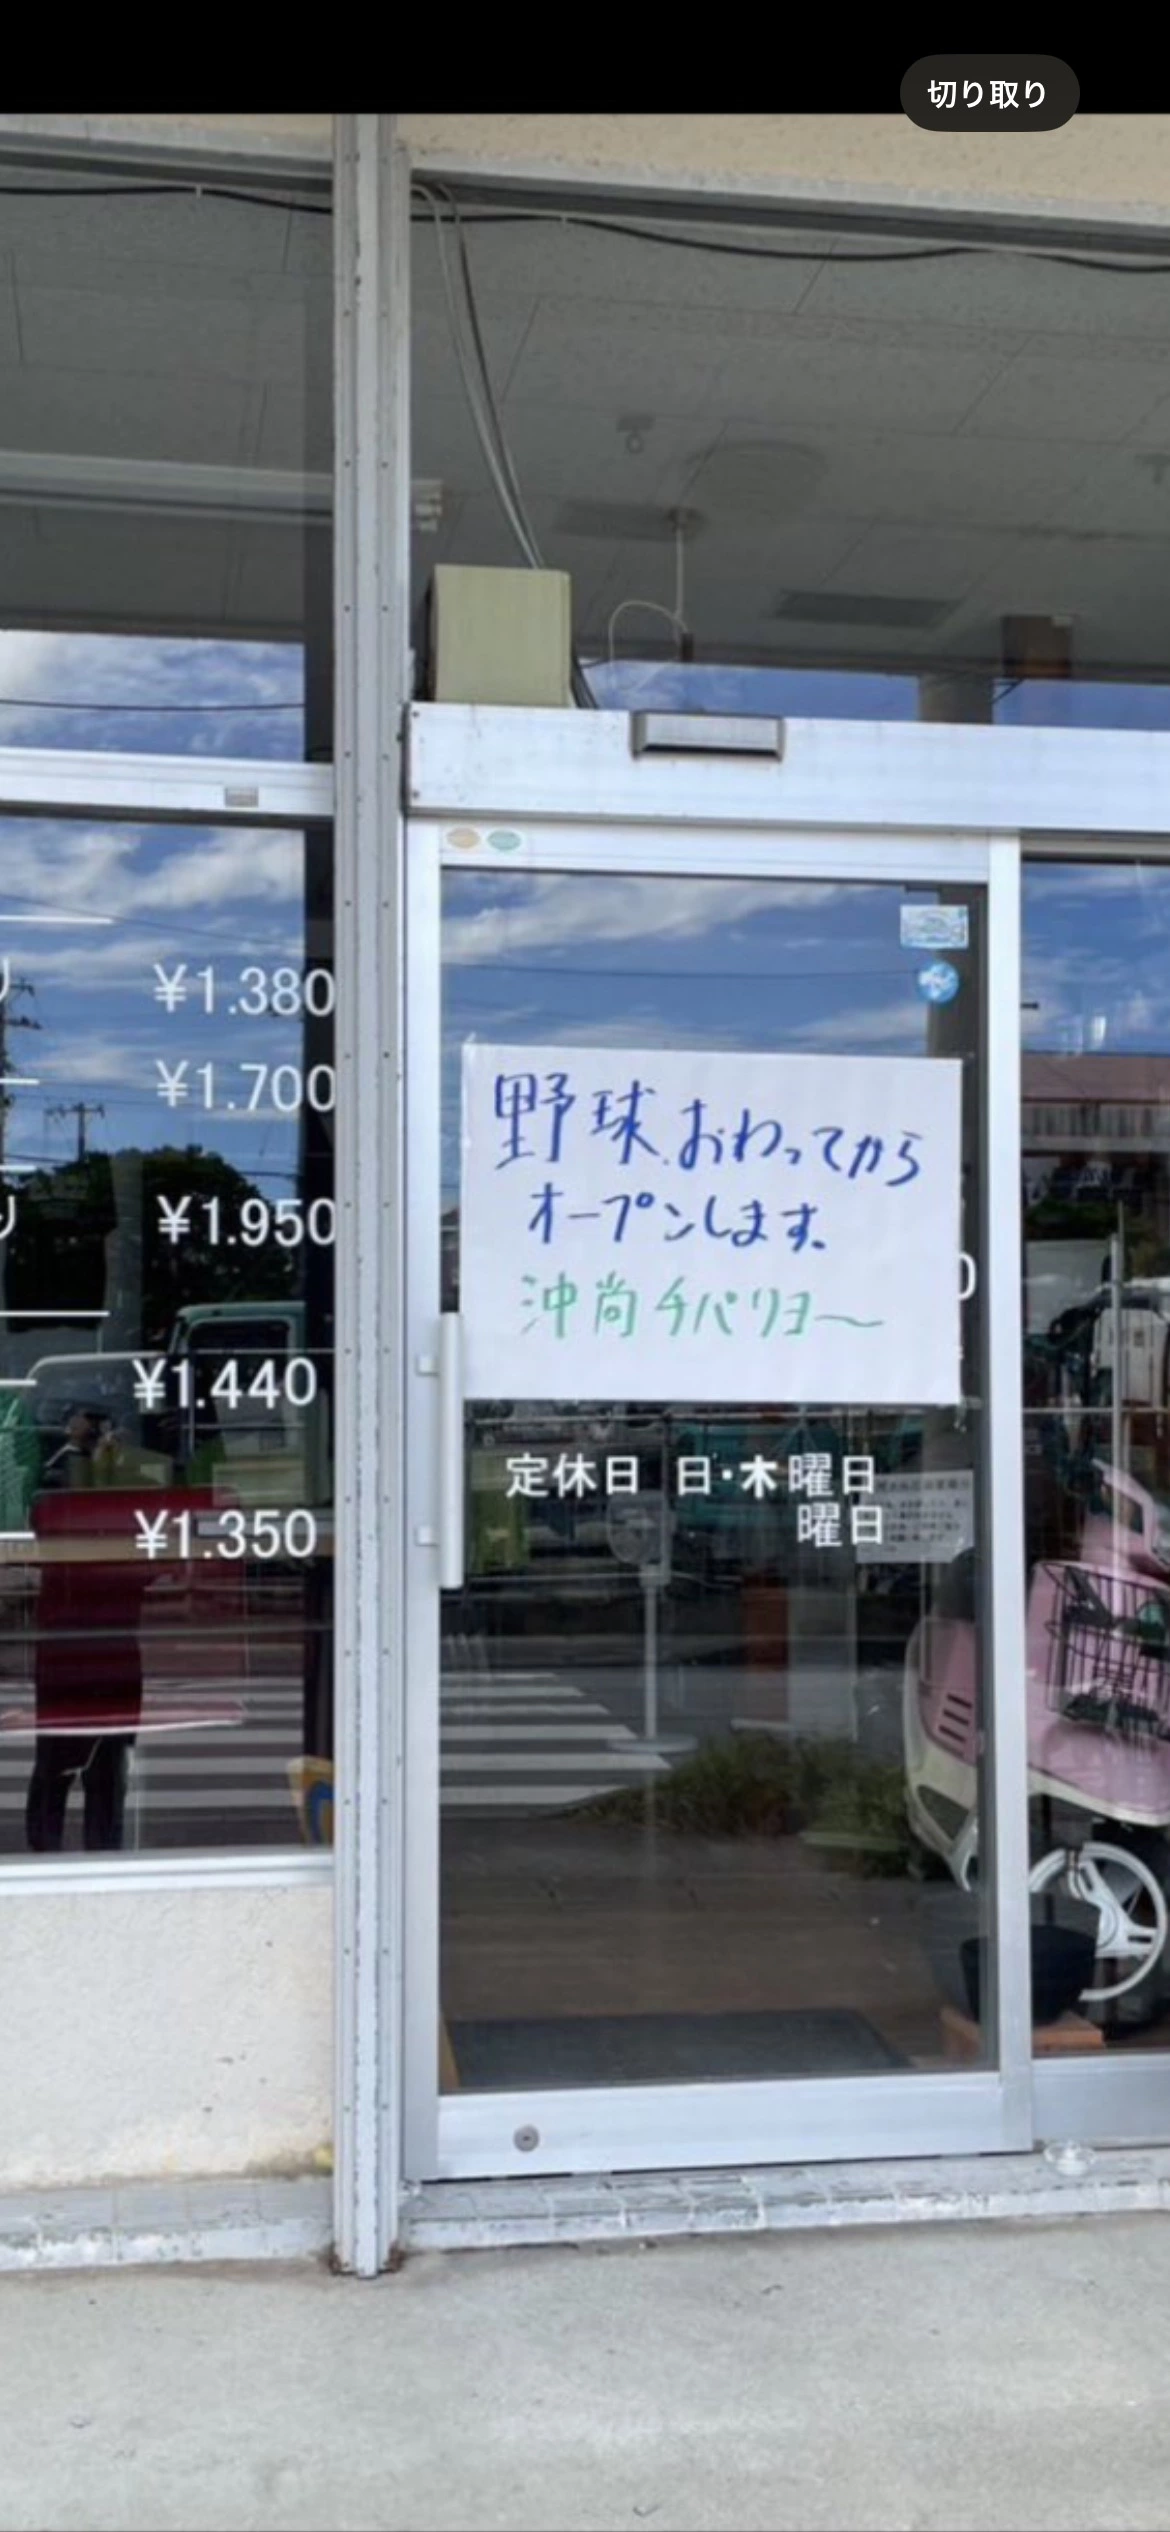 切り取り
¥1.380
¥1.700
¥1.950
¥1.440
¥1.350
野球おわってから
オープンします。
沖尚チバリヨ〜
定休日 日・木曜日
曜日